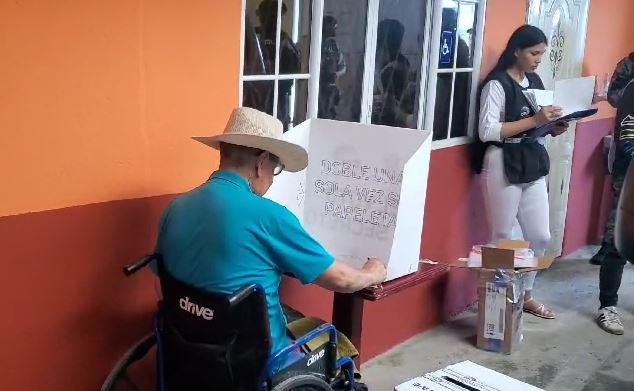 DOBLE UNA
SOLA VEZ S
PAPELETA
drive
drive